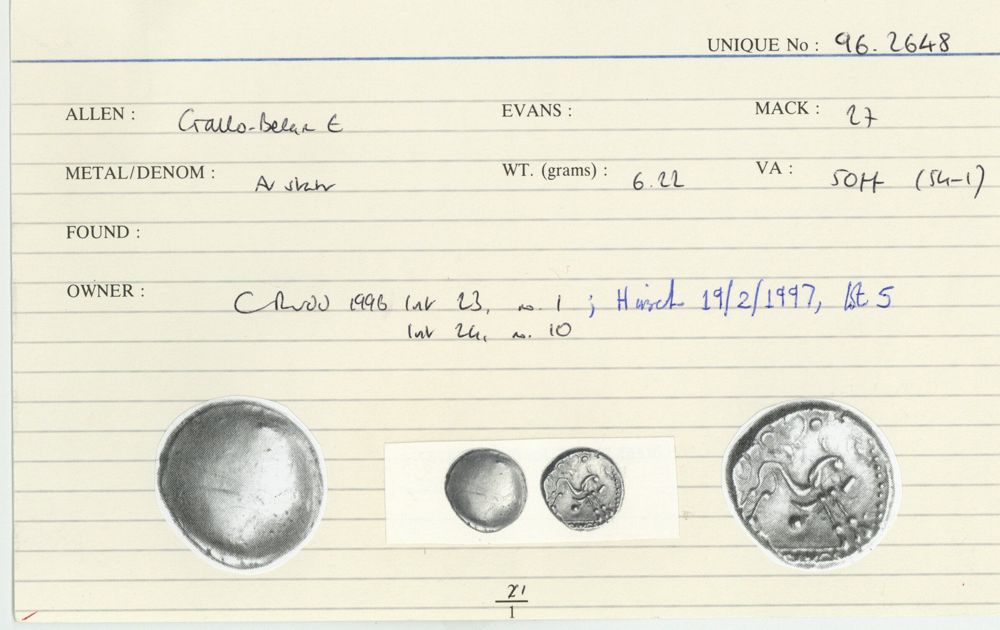 UNIQUE No : 96.2648
ALLEN : Gallo-Belgic E EVANS : MACK : 27
METAL/DENOM : AV stater WT. (grams) : 6.22 VA : 50ff (54-1)
FOUND :
OWNER : 1996 23, no. 1 ; Hirsch 19/2/1997, lot 5
24, no. 10
1